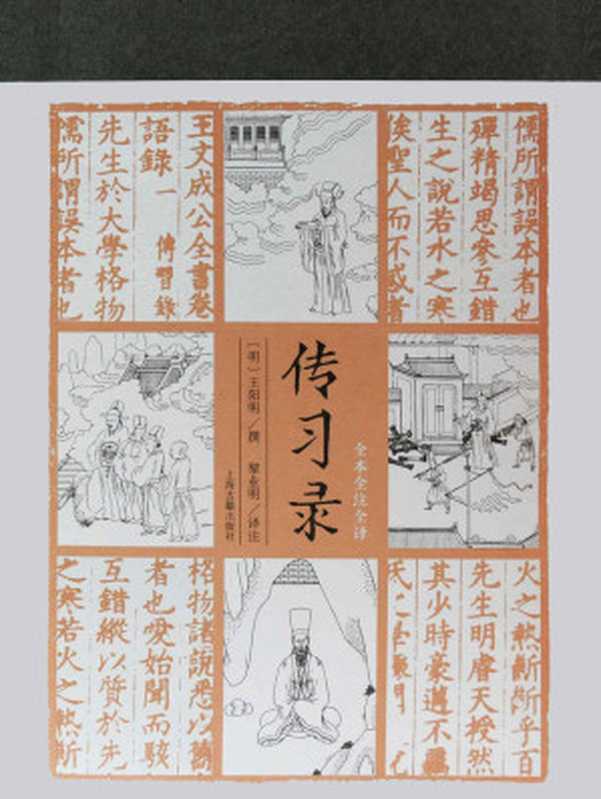 王文成公全書卷
語錄一 傳習錄
先生於大學格物
儒所謂誤本者也
儒所謂誤本者也
殫精竭思參互錯
生之說若水之寒
俟聖人而不惑者
全本全注全译
传习录
〔明〕王阳明／撰 黎业明／译注
上海古籍出版社
格物諸說悉以舊
者也愛始聞而駭
互錯縱以質於先
之寒若火之熱斷
火之熱斷斷乎百
先生明睿天授然
其少時豪邁不